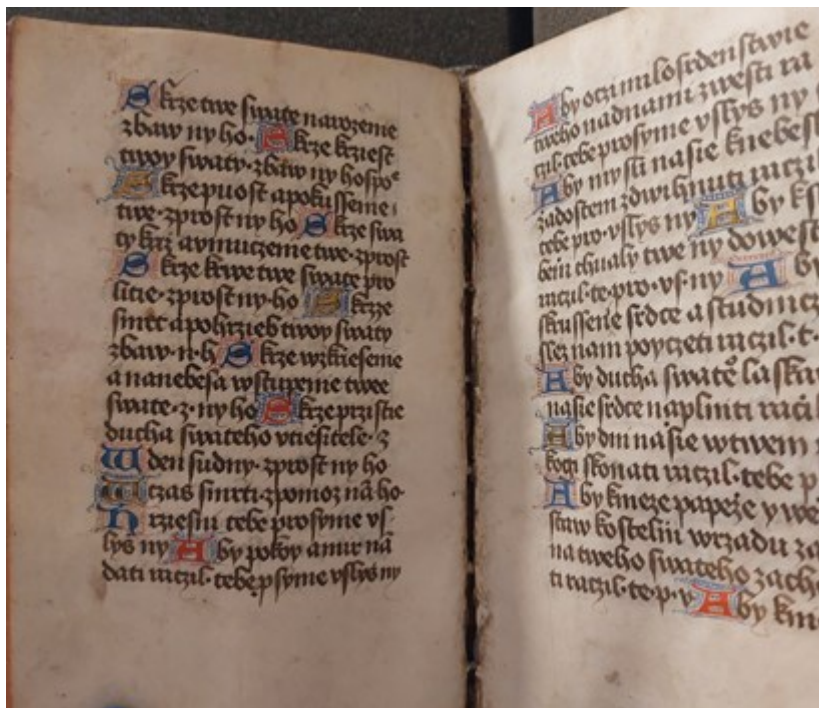 Skrze twe swate narozenie
zbaw ny ho· Skrze krziest
twoy swaty· zbaw ny hospo
Skrze puost a pokussenie
twe· zprost ny ho Skrze swa
ty krz a vmuczenie twe· zprost
Skrze krwe twe swate pro
litie· zprost ny· ho Skrze
smrt a pohrzieb twoy swaty
zbaw· n· h Skrze wzkrziesenie
a nanebesa wstupenie twee
swate· z· ny ho Skrze przistie
ducha swateho vtiesitele· z
W den sudny· zprost ny ho
W czas smrti· zpomoz nā ho·
Hrziesni tebe prosyme vs
lys ny Aby pokoy a mir nā
dati raczil· tebe psyme vslys ny
Aby oczi milosrdenstwie
tweho nad nami zwesti ra
czil· tebe prosyme vslys ny
Aby mysli nasie k nebesk
zadostem zdwihnuti raczil
tebe pro· vslys ny Aby k s
bein chualy twe ny dowest
raczil· te· pro· vs· ny Aby
skrussene srdce a studnicz
slez nam poyczeti raczil· t·
Aby ducha swatẽ laska
nasie srdce naplniti račil
Aby dni nasie w twem
koti skonati raczil· tebe p
Aby knieze papeze y we
staw kostelni w rzadu za
na tweho swateho zacho
ti raczil· te· p· v Aby kni